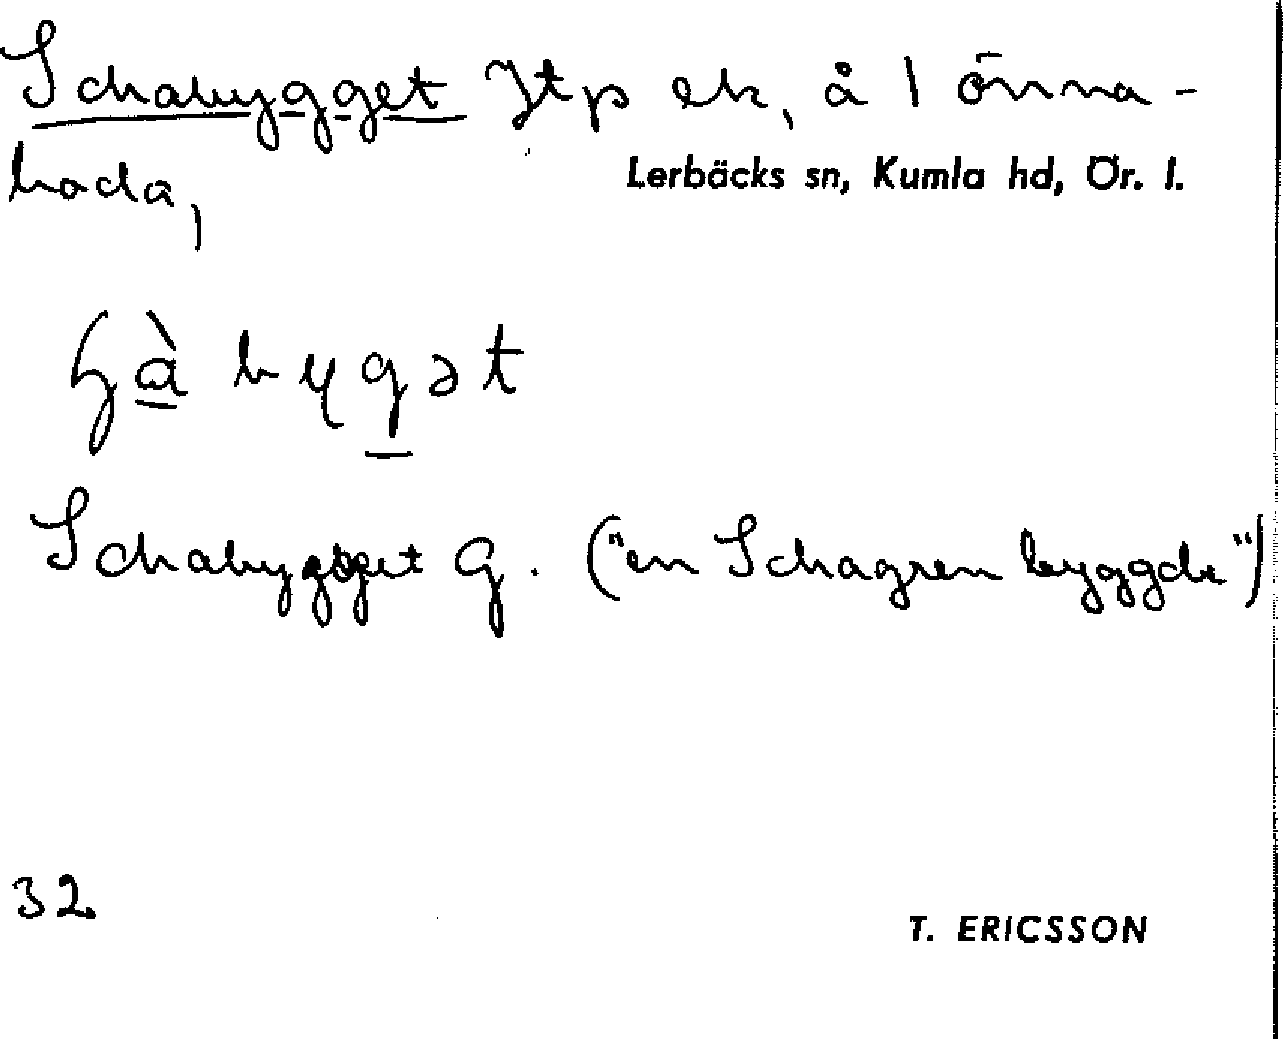 Schabygget Jtp ek, å 1 önna-
boda,
Lerbäcks sn, Kumla hd, Ör. l.
bygət
Schabygget G. ("en Schagren byggde")
32
T. ERICSSON